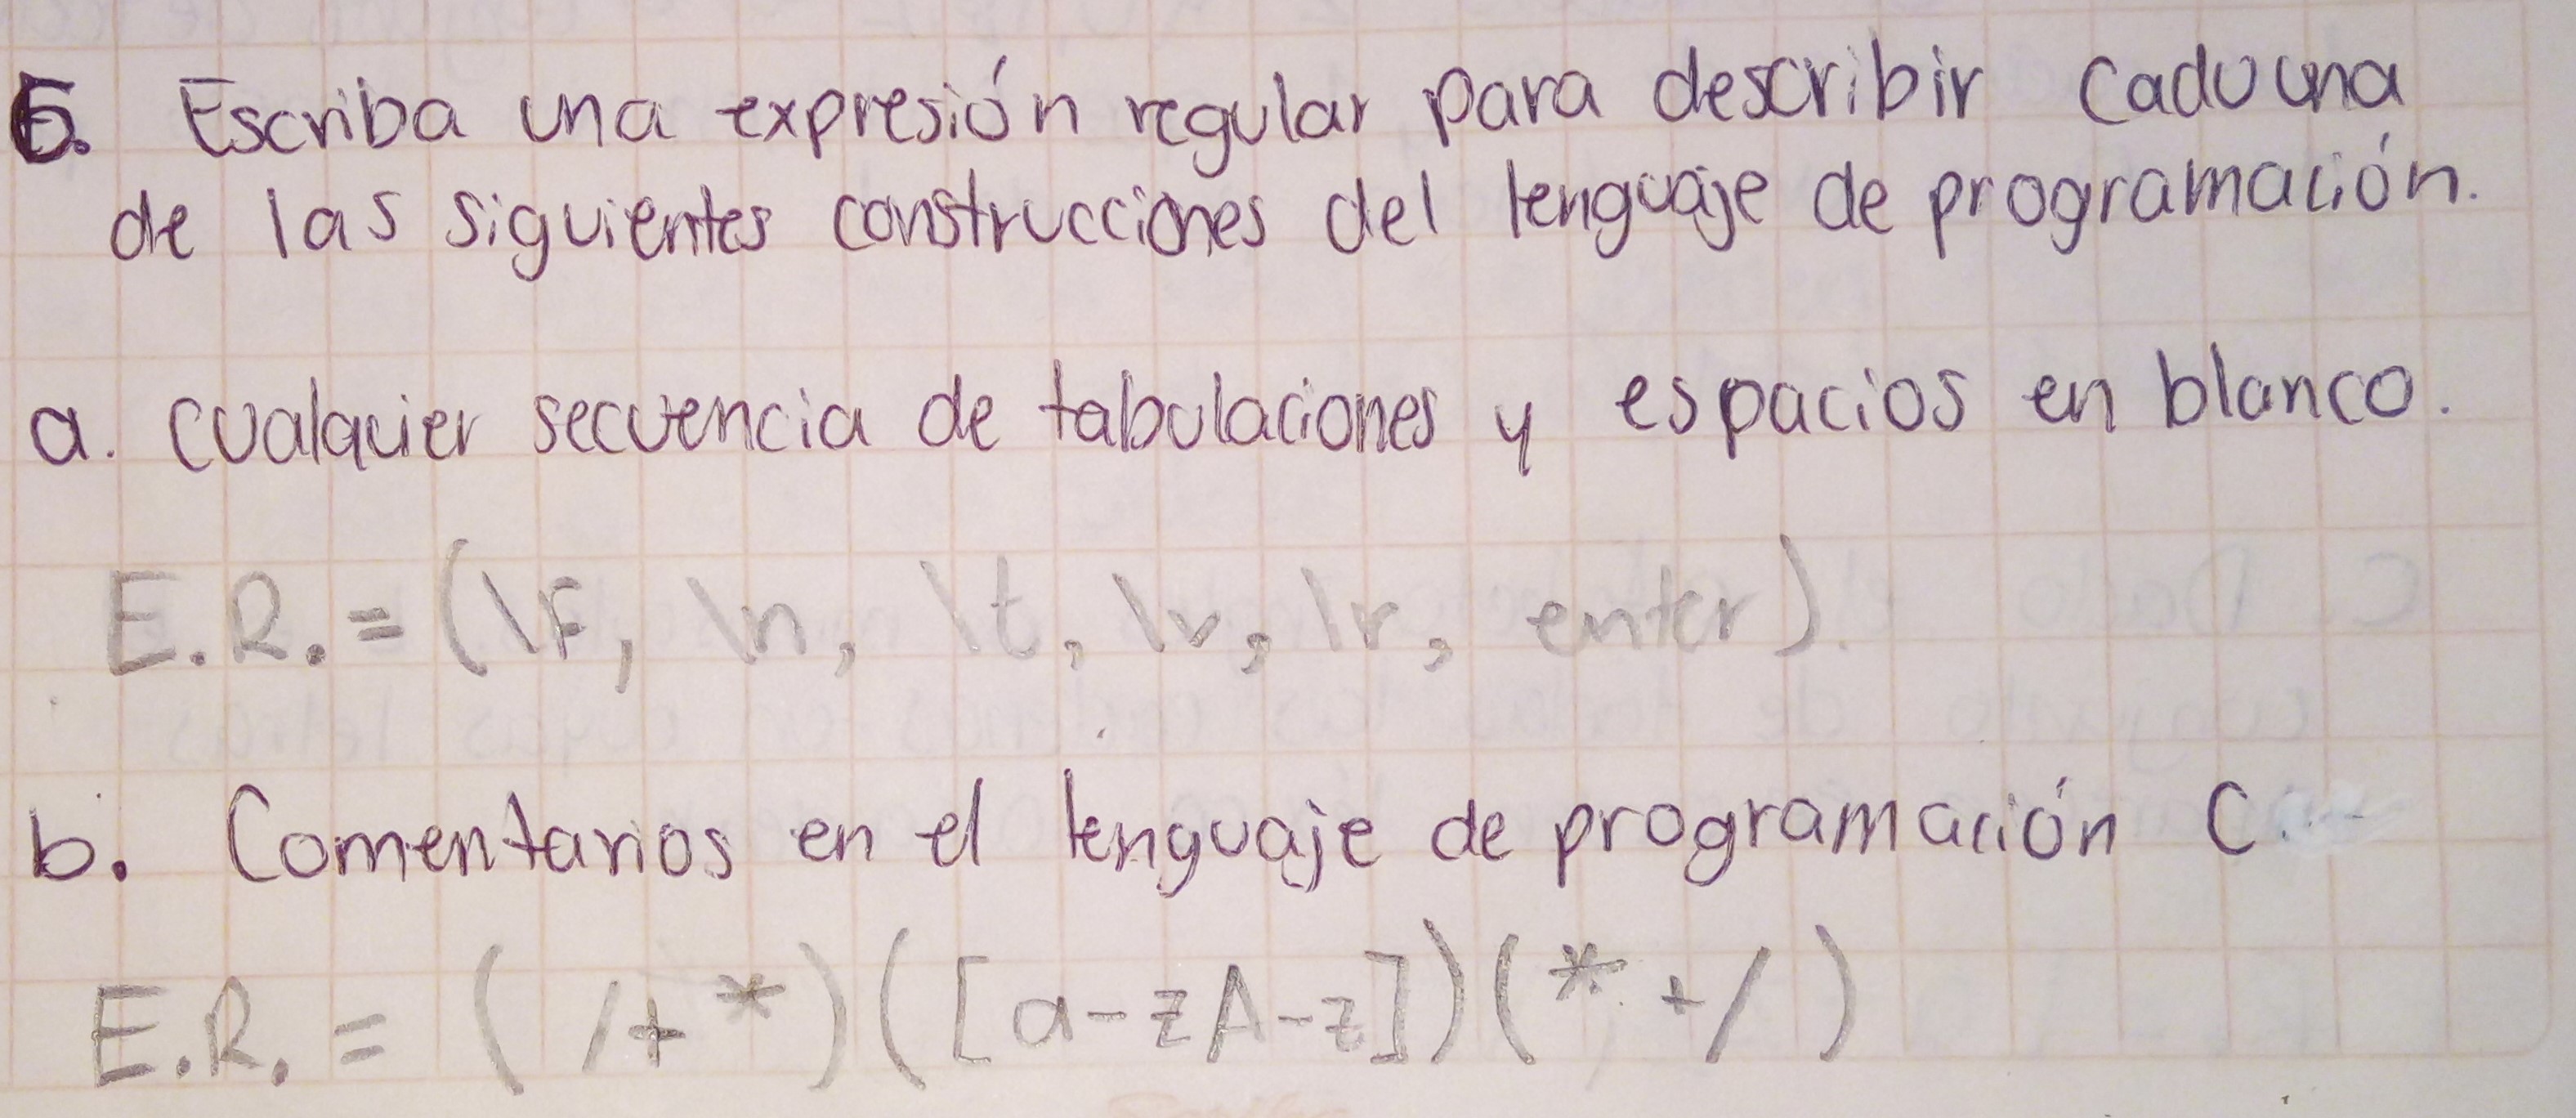 6. Escriba una expresión regular para describir cada una
de las siguientes construcciones del lenguaje de programación.
a. Cualquier secuencia de tabulaciones y espacios en blanco.
E.R. = (\F, \n, \t, \v, \r, enter).
b. Comentarios en el lenguaje de programación C.
E.R. = ( /+ *)([a-zA-z])(* +/ )